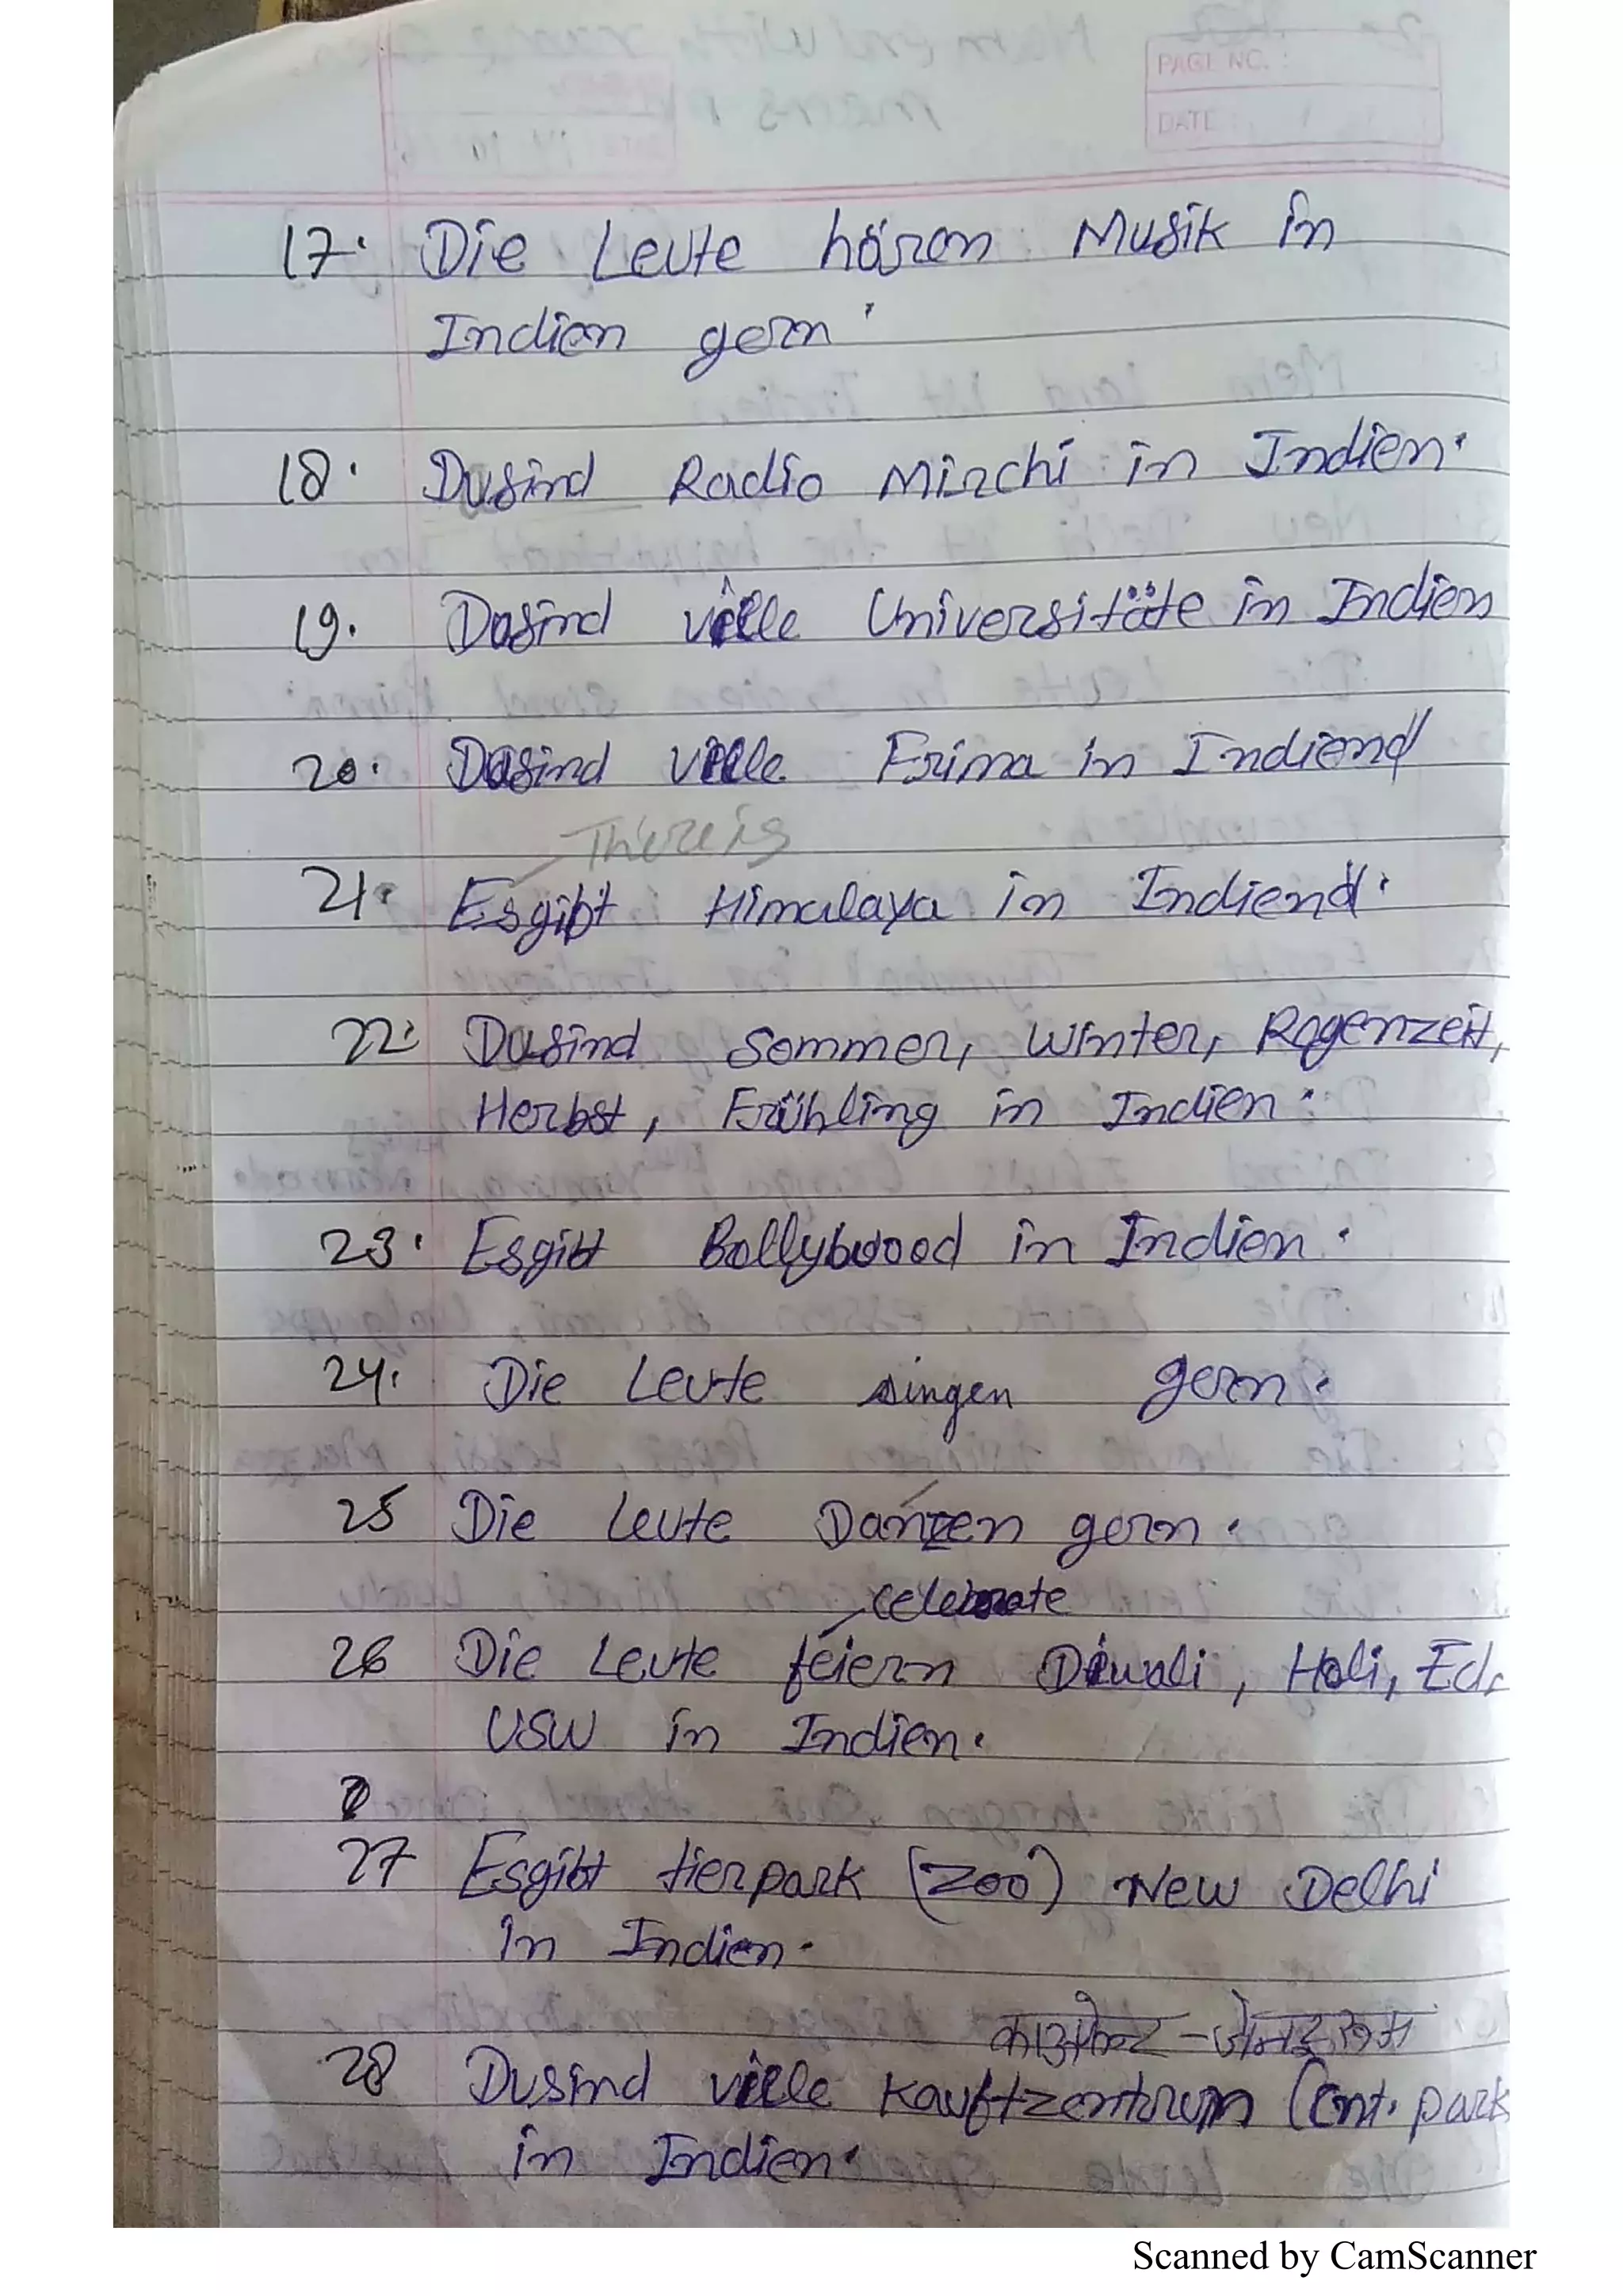 PAGE NO. :
DATE :
17. Die Leute hören Musik in
Indien gern.
18. Dusind Radio Mirchi in Indien.
19. Dasind vielle Universitäte in Indien
20. Dasind vielle Frima in Indiend
Thereis
21. Esgibt Himalaya in Indiend.
22. Dasind Sommer, Winter, Regenzeit,
Herbst, Frühling in Indien.
23. Esgibt Bollybwood in Indien.
24. Die Leute singen gern.
25 Die Leute Danzen gern.
celebrate
26 Die Leute feiern Diwali, Holi, Ed,
USW in Indien.
27 Esgibt tierpark (zoo) New Delhi
in Indien.
28 Dusind vielle Kauftzentrum (Ent. park
in Indien.
Scanned by CamScanner